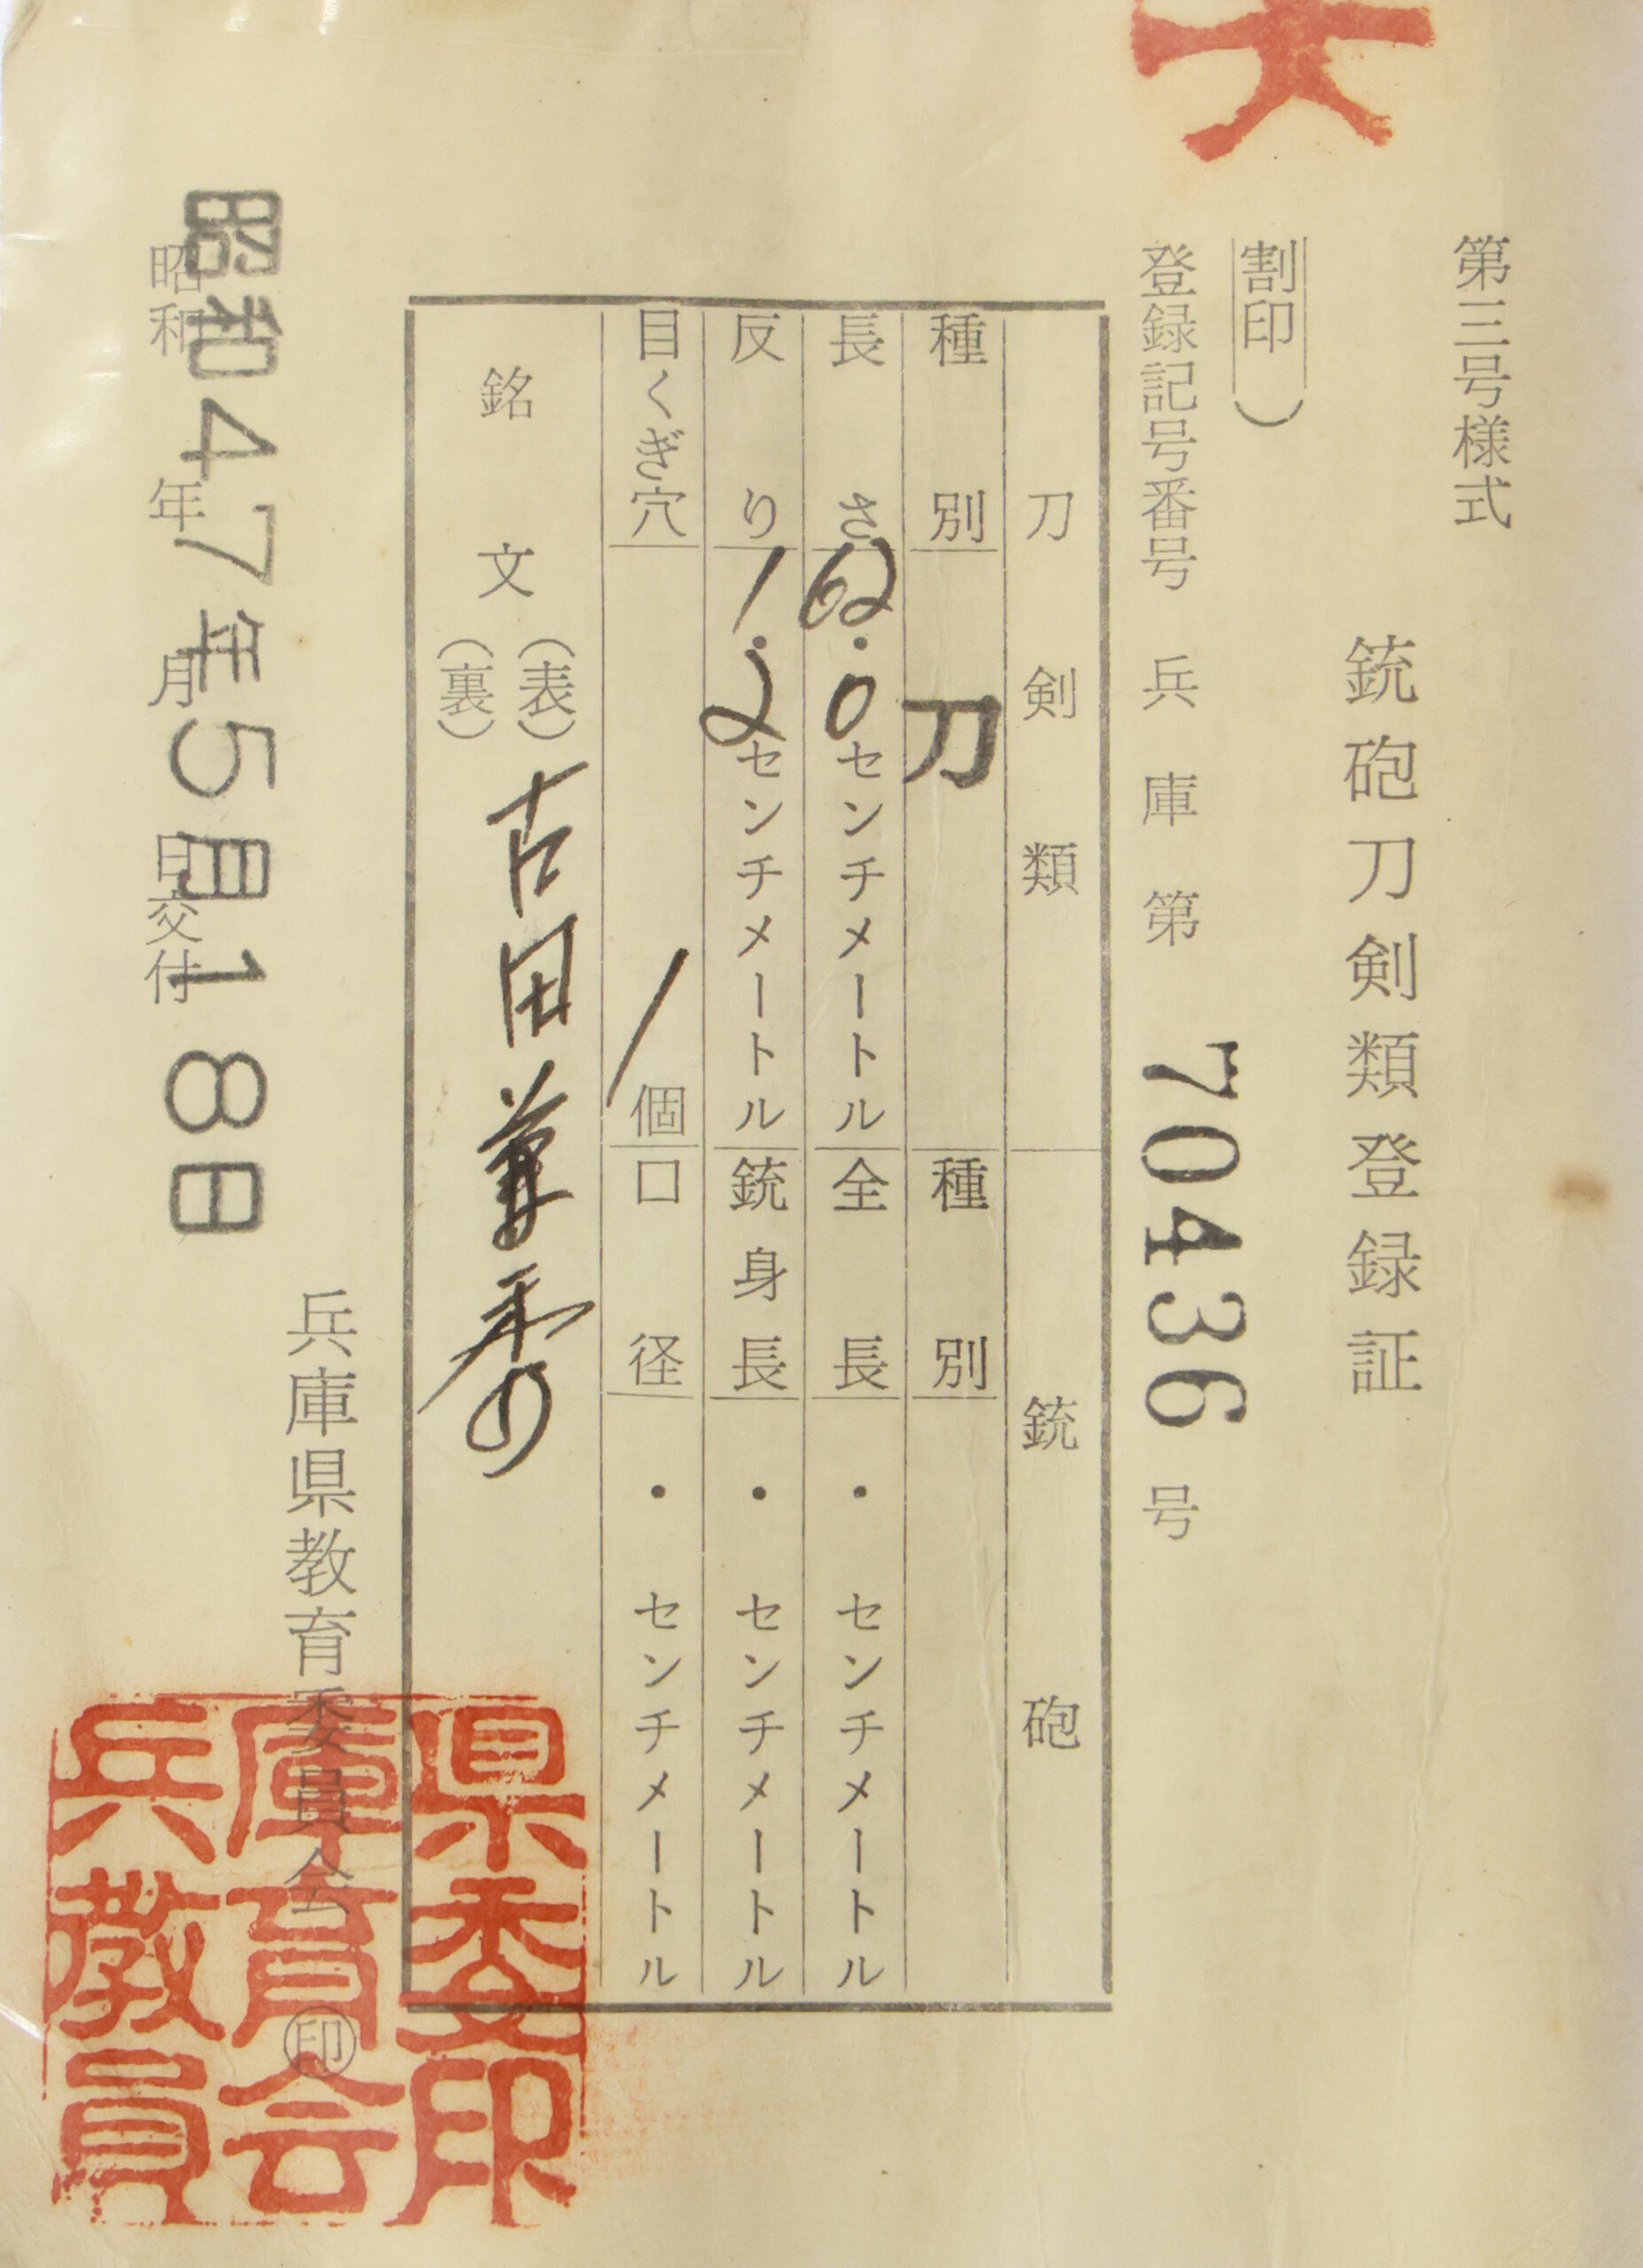 第三号様式
銃砲刀剣類登録証
割印)
登録記号番号 兵庫第 70436 号
刀剣類 銃砲
種別 刀 種別
長さ 62.0センチメートル 全長 ・ センチメートル
反り 1.2センチメートル 銃身長 ・ センチメートル
目くぎ穴 1個 口径 ・ センチメートル
銘文 (表) 古田
(裏)
兵庫県教育委員会 ㊞
昭和 年 月 日交付
昭和47年5月18日
兵庫県
教育委
員会印